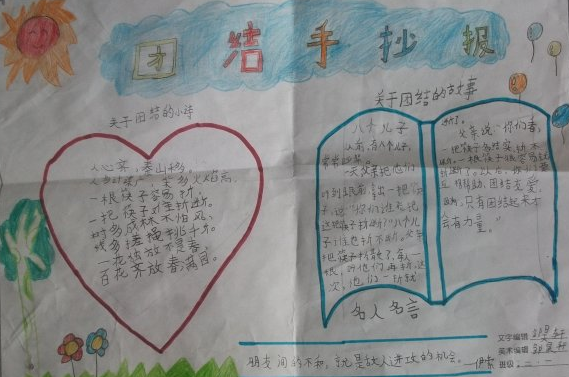 团结手抄报
关于团结的小诗
人心齐,泰山移。
一根筷子容易折,
一把筷子难折断。
树多成林不怕风,
线多搓绳挑千斤。
一花独放不是春,
百花齐放春满园。
关于团结的故事
八个儿子
人有八个儿子,
一天父亲把他们
叫到跟前,拿一把筷
子说:“你们谁能把
这把筷子折断?”八个儿
子谁也折不断。父亲
把筷子拆散了,每人一
根,叫他们再折,这
次,他们一折就
断了。
父亲说:“你们看,
一把筷子
一根筷子很容易就
团结友爱,
只有团结起来才
会有力量。”
名人名言
朋友间的不和,就是敌人进攻的机会。——伊索
文字编辑:
美术编辑:
班级:二·一